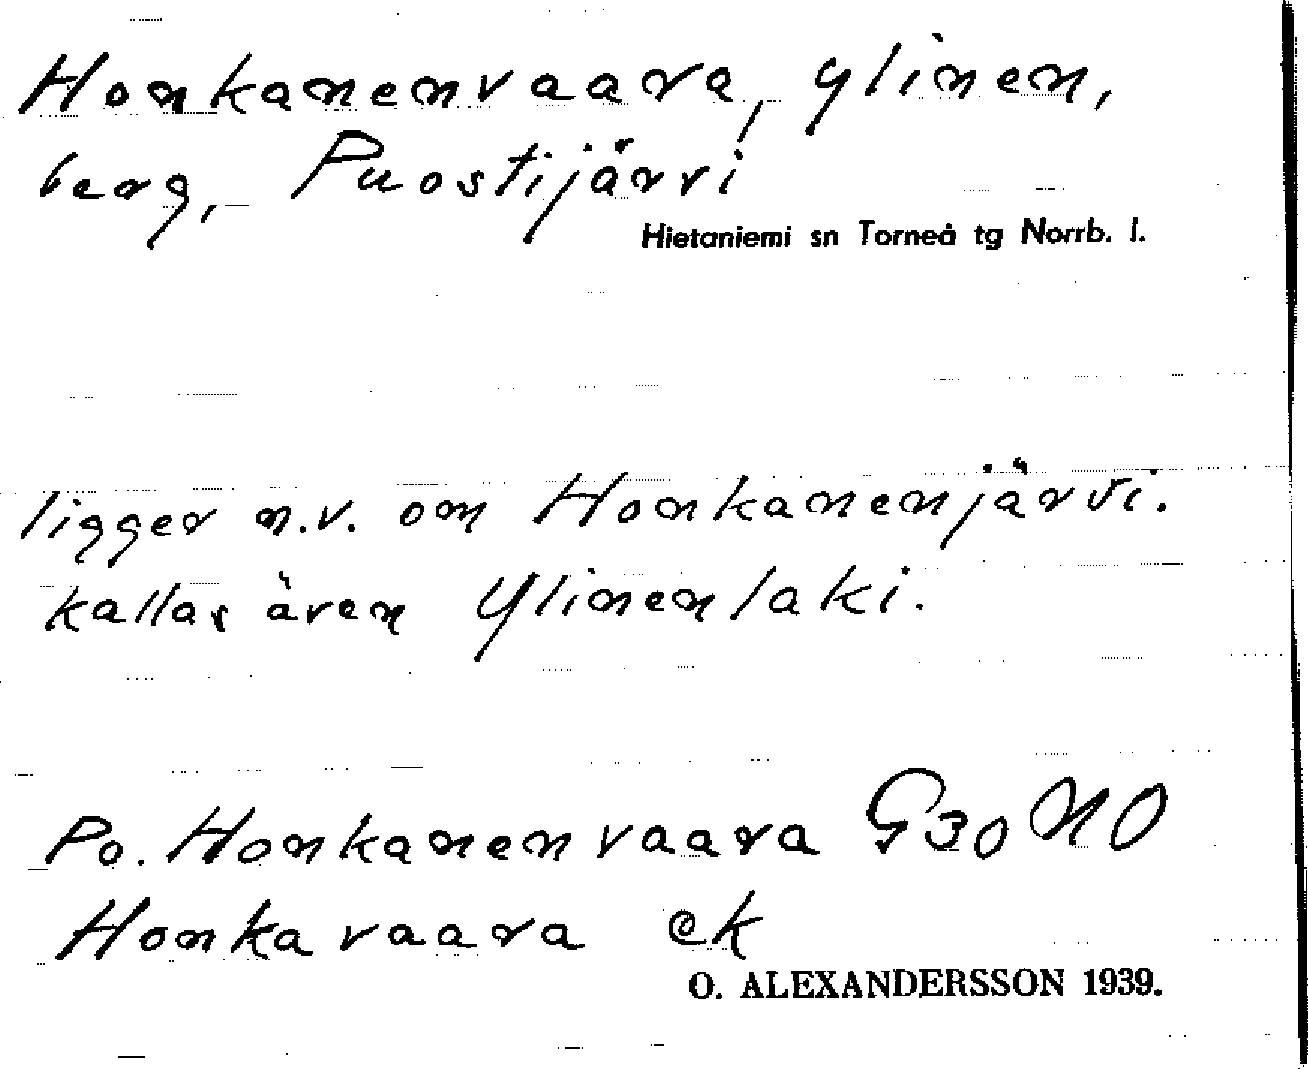 Honkanenvaara, ylinen,
berg, Puostijärvi
Hietaniemi sn Torneå tg Norrb. l.
ligger n.v. om Honkanenjärvi.
kallas även Ylinenlaki.
Po. Honkanenvaara G30 NO
Honkavaara ek
O. ALEXANDERSSON 1939.